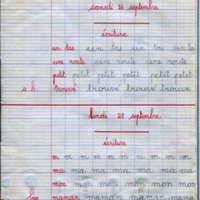 samedi 26 septembre
écriture
un bas un bas un bas un bas
une route une route une route
petit petit petit petit petit petit
a b. trouvé trouvé trouvé trouvé
lundi 28 septembre
écriture
m m m m m m m m m m
ma ma ma ma ma ma ma
mon mon mon mon mon mon
maman maman maman mama